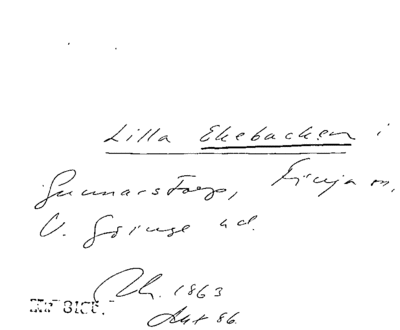 Lilla Ekebacken i
Gunnarstorp, Finja sn,
V. Göinge hd.
1863
Akt 86.